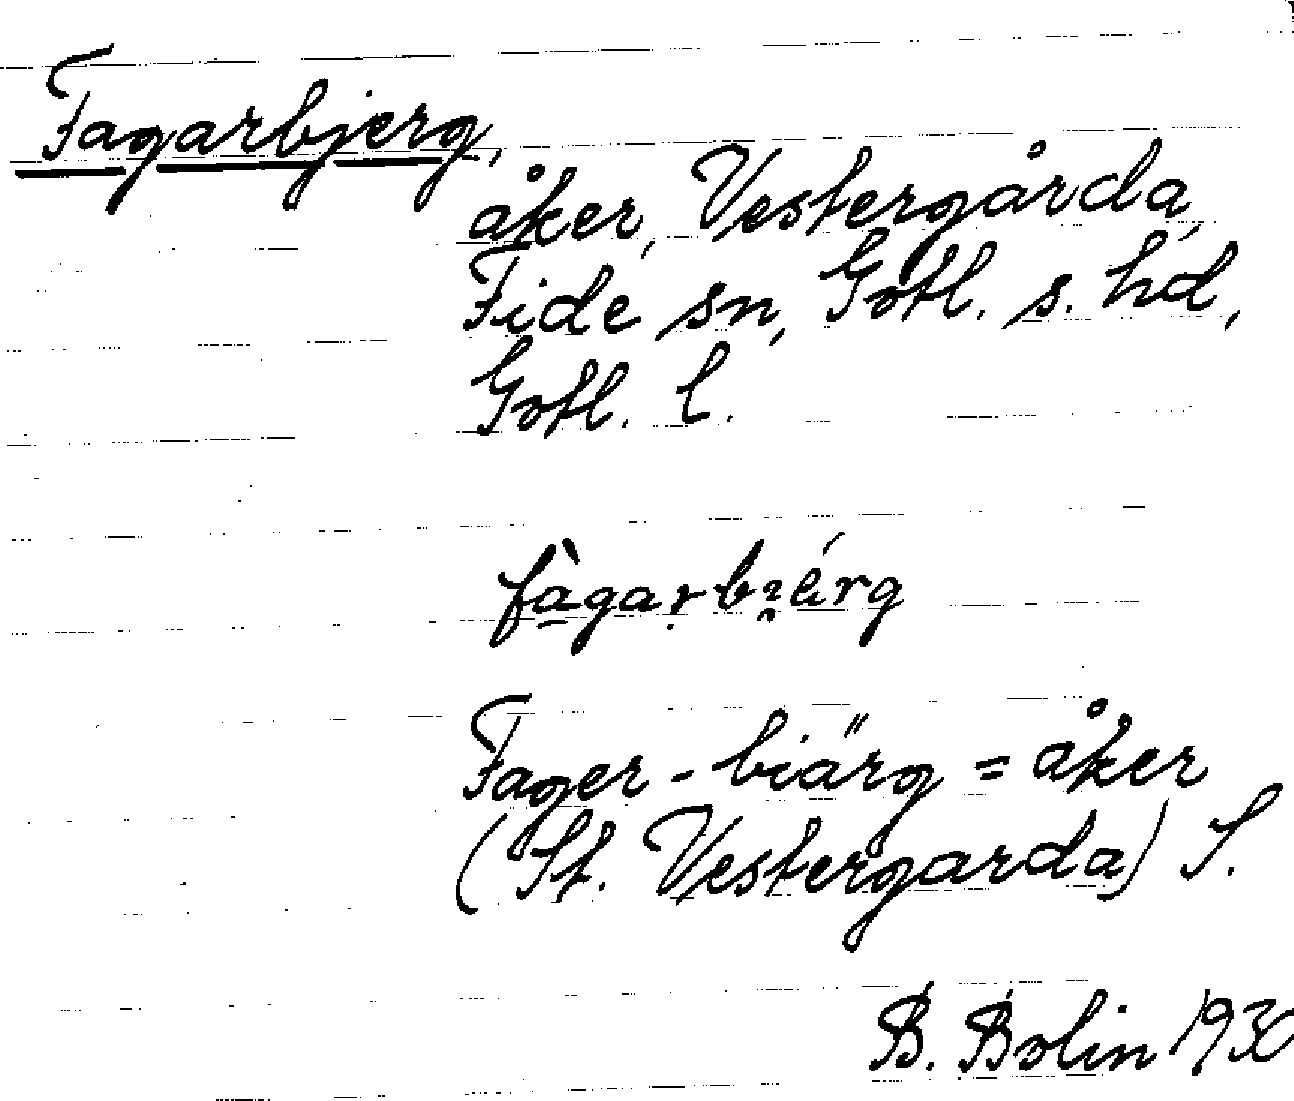 Fagarbjerg,
åker, Vestergårda,
Fide sn, Gotl. s. hd,
Gotl. l.
Fager-biärg = åker
(St. Vestergarda) S.
B. Bolin 1930